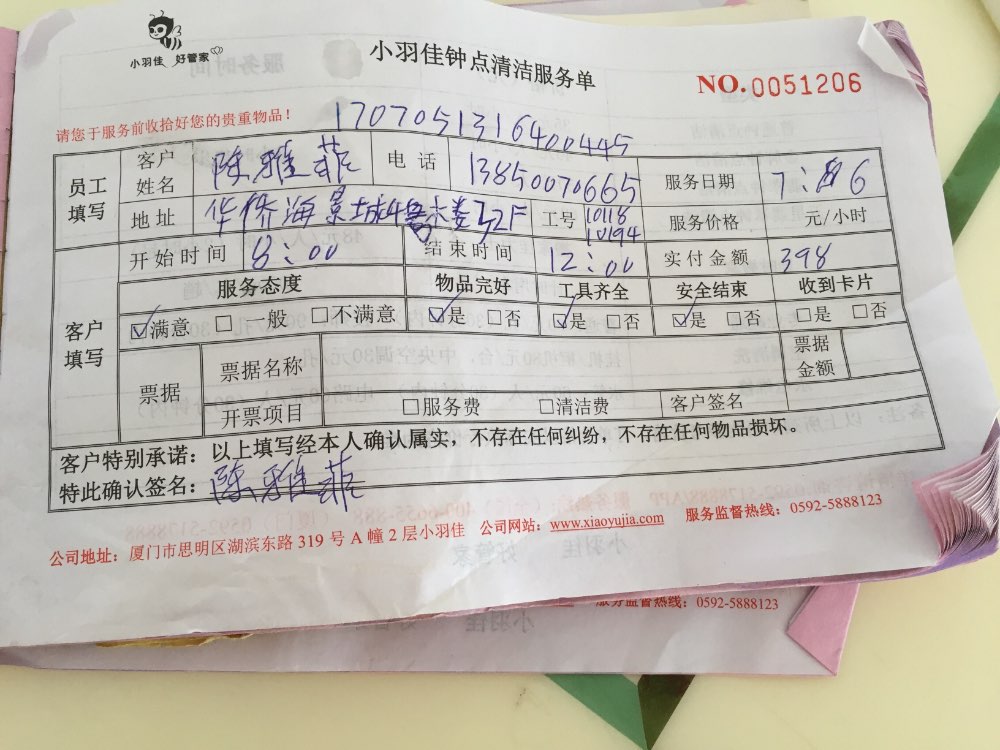 小羽佳 好管家
小羽佳钟点清洁服务单
NO.0051206
请您于服务前收拾好您的贵重物品！
1707051316400445
员工填写 客户姓名 陈雅菲 电话 13850070665 服务日期 7:6
地址 华侨海景城 楼32F 工号 10118 10194 服务价格 元/小时
开始时间 8:00 结束时间 12:00 实付金额 398
客户填写 服务态度 物品完好 工具齐全 安全结束 收到卡片
☑满意 □一般 □不满意 ☑是 □否 ☑是 □否 ☑是 □否 □是 □否
票据 票据名称 票据金额
开票项目 □服务费 □清洁费 客户签名
客户特别承诺：以上填写经本人确认属实，不存在任何纠纷，不存在任何物品损坏。
特此确认签名：陈雅菲
公司地址：厦门市思明区湖滨东路 319 号 A 幢 2 层小羽佳 公司网站：www.xiaoyujia.com 服务监督热线：0592-5888123
服务监督热线：0592-5888123